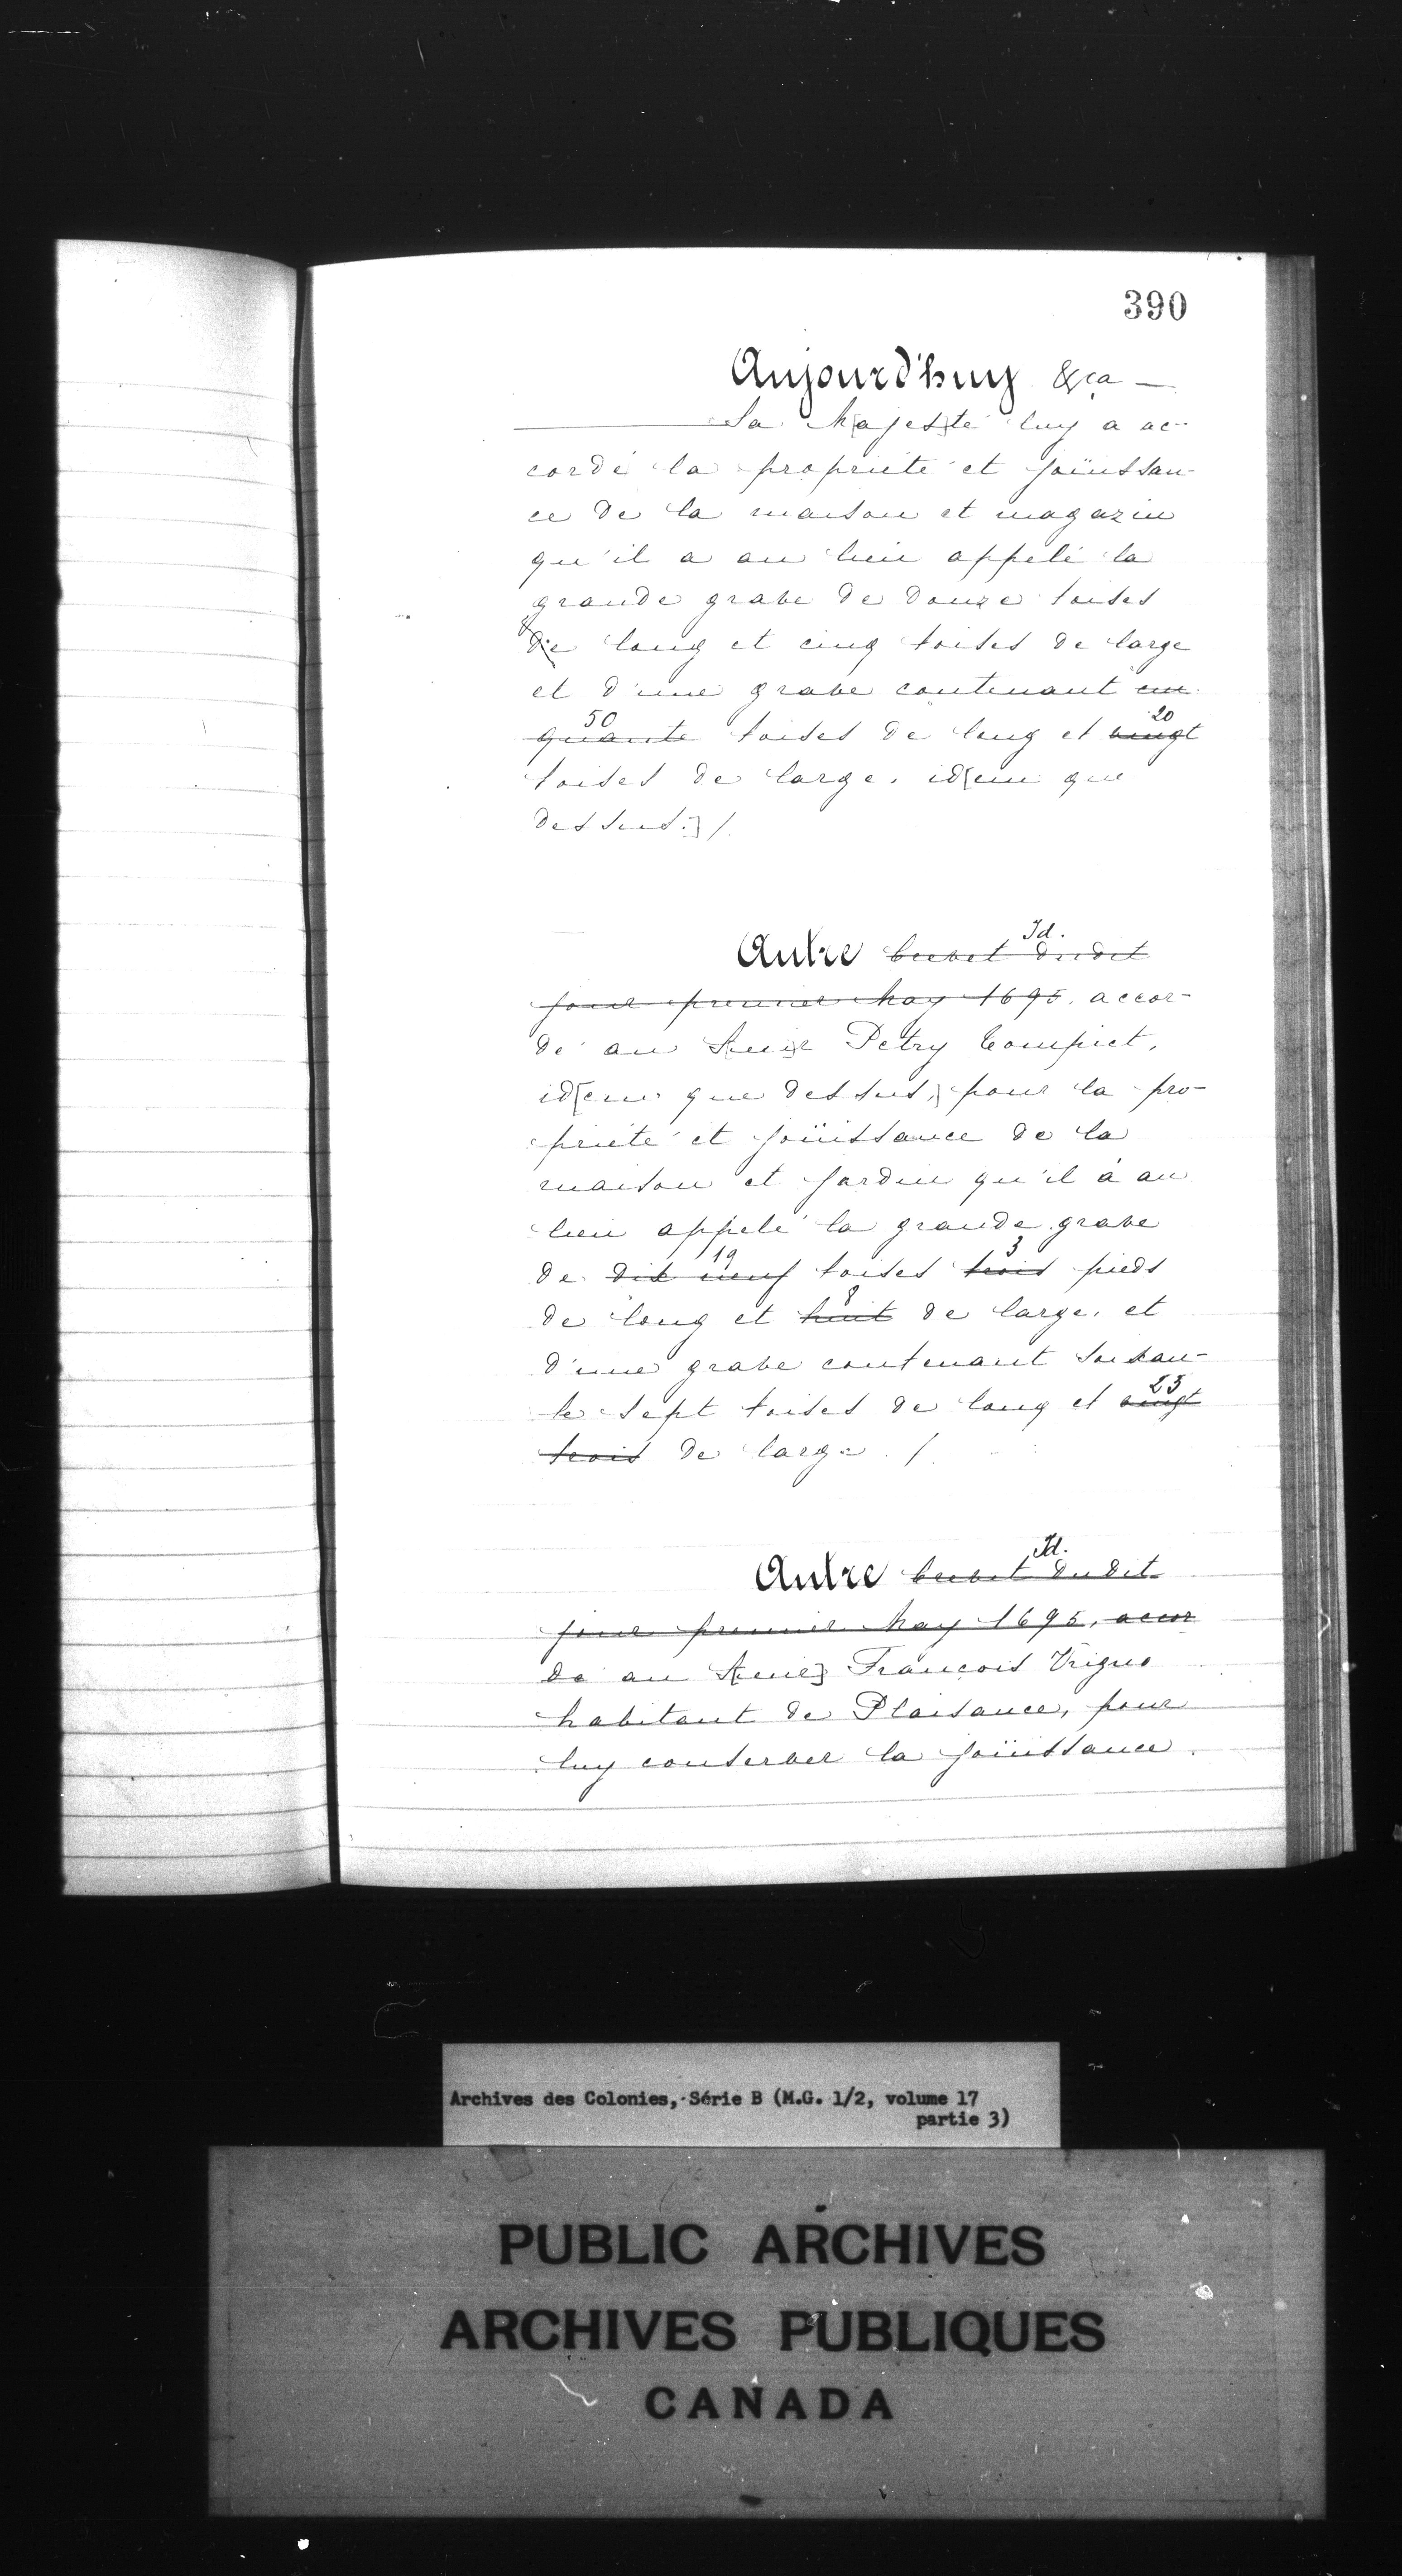 390
Aujourd'huy &ca —
Sa M[ajes]té luy a ac-
cordé la proprieté et joüissan-
ce de la maison et magazin
qu'il a au lieu appelé la
grande grave de douze toises
de long et cinq toises de large
et d'une grave contenant cin
50 20
quante toises de long et vingt
toises de large. id[em que
dessus.] /.
Id.
Autre brevet dudit
jour premier May 1695. accor-
dé au S[ieu]r Petry
id[em que dessus,] pour la pro-
prieté et joüissance de la
maison et jardin qu'il à au
lieu appelé la grande grave
19 3
de dix neuf toises trois pieds
8
de long et huit de large. et
d'une grave contenant soixan-
23
te sept toises de long et vingt
trois de large. /.
Id.
Autre brevet dudit
jour premier May 1695, accor
dé au S[ieur] François
habitant de Plaisance, pour
luy conserver la joüissance
Archives des Colonies, Série B (M.G. 1/2, volume 17
partie 3)
PUBLIC ARCHIVES
ARCHIVES PUBLIQUES
CANADA